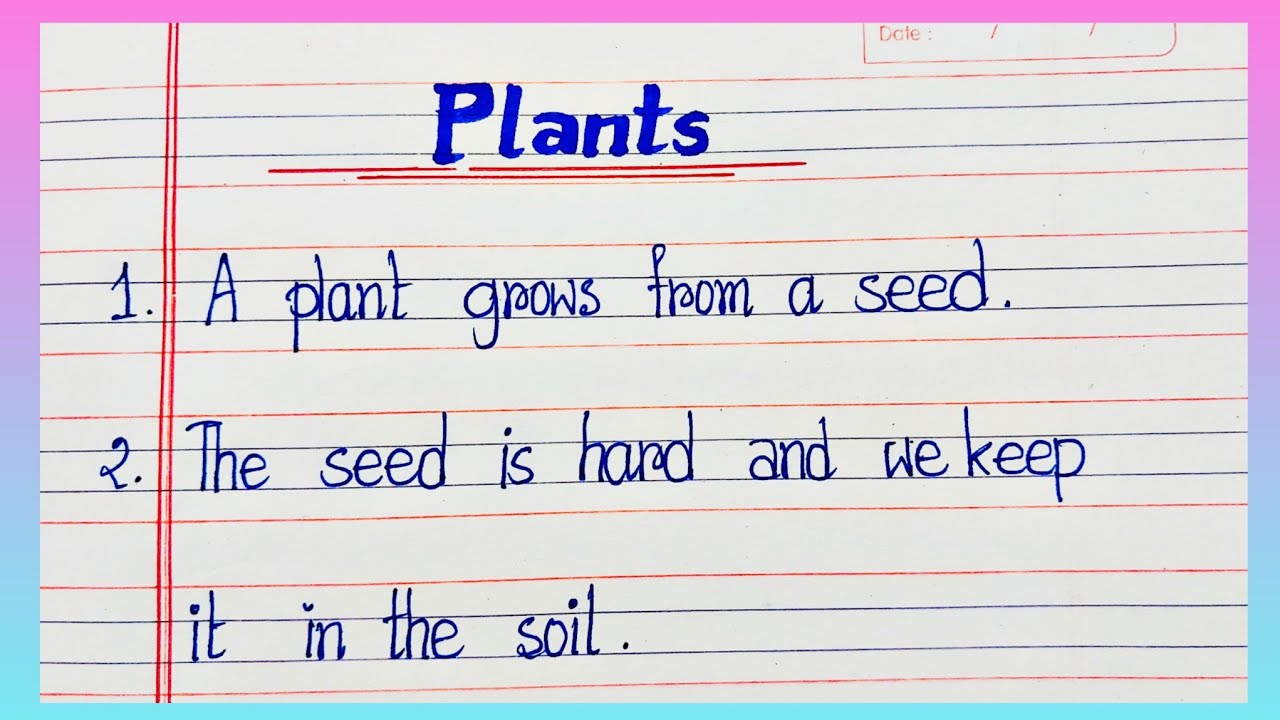 Date : / /
Plants
1. A plant grows from a seed.
2. The seed is hard and we keep
it in the soil.